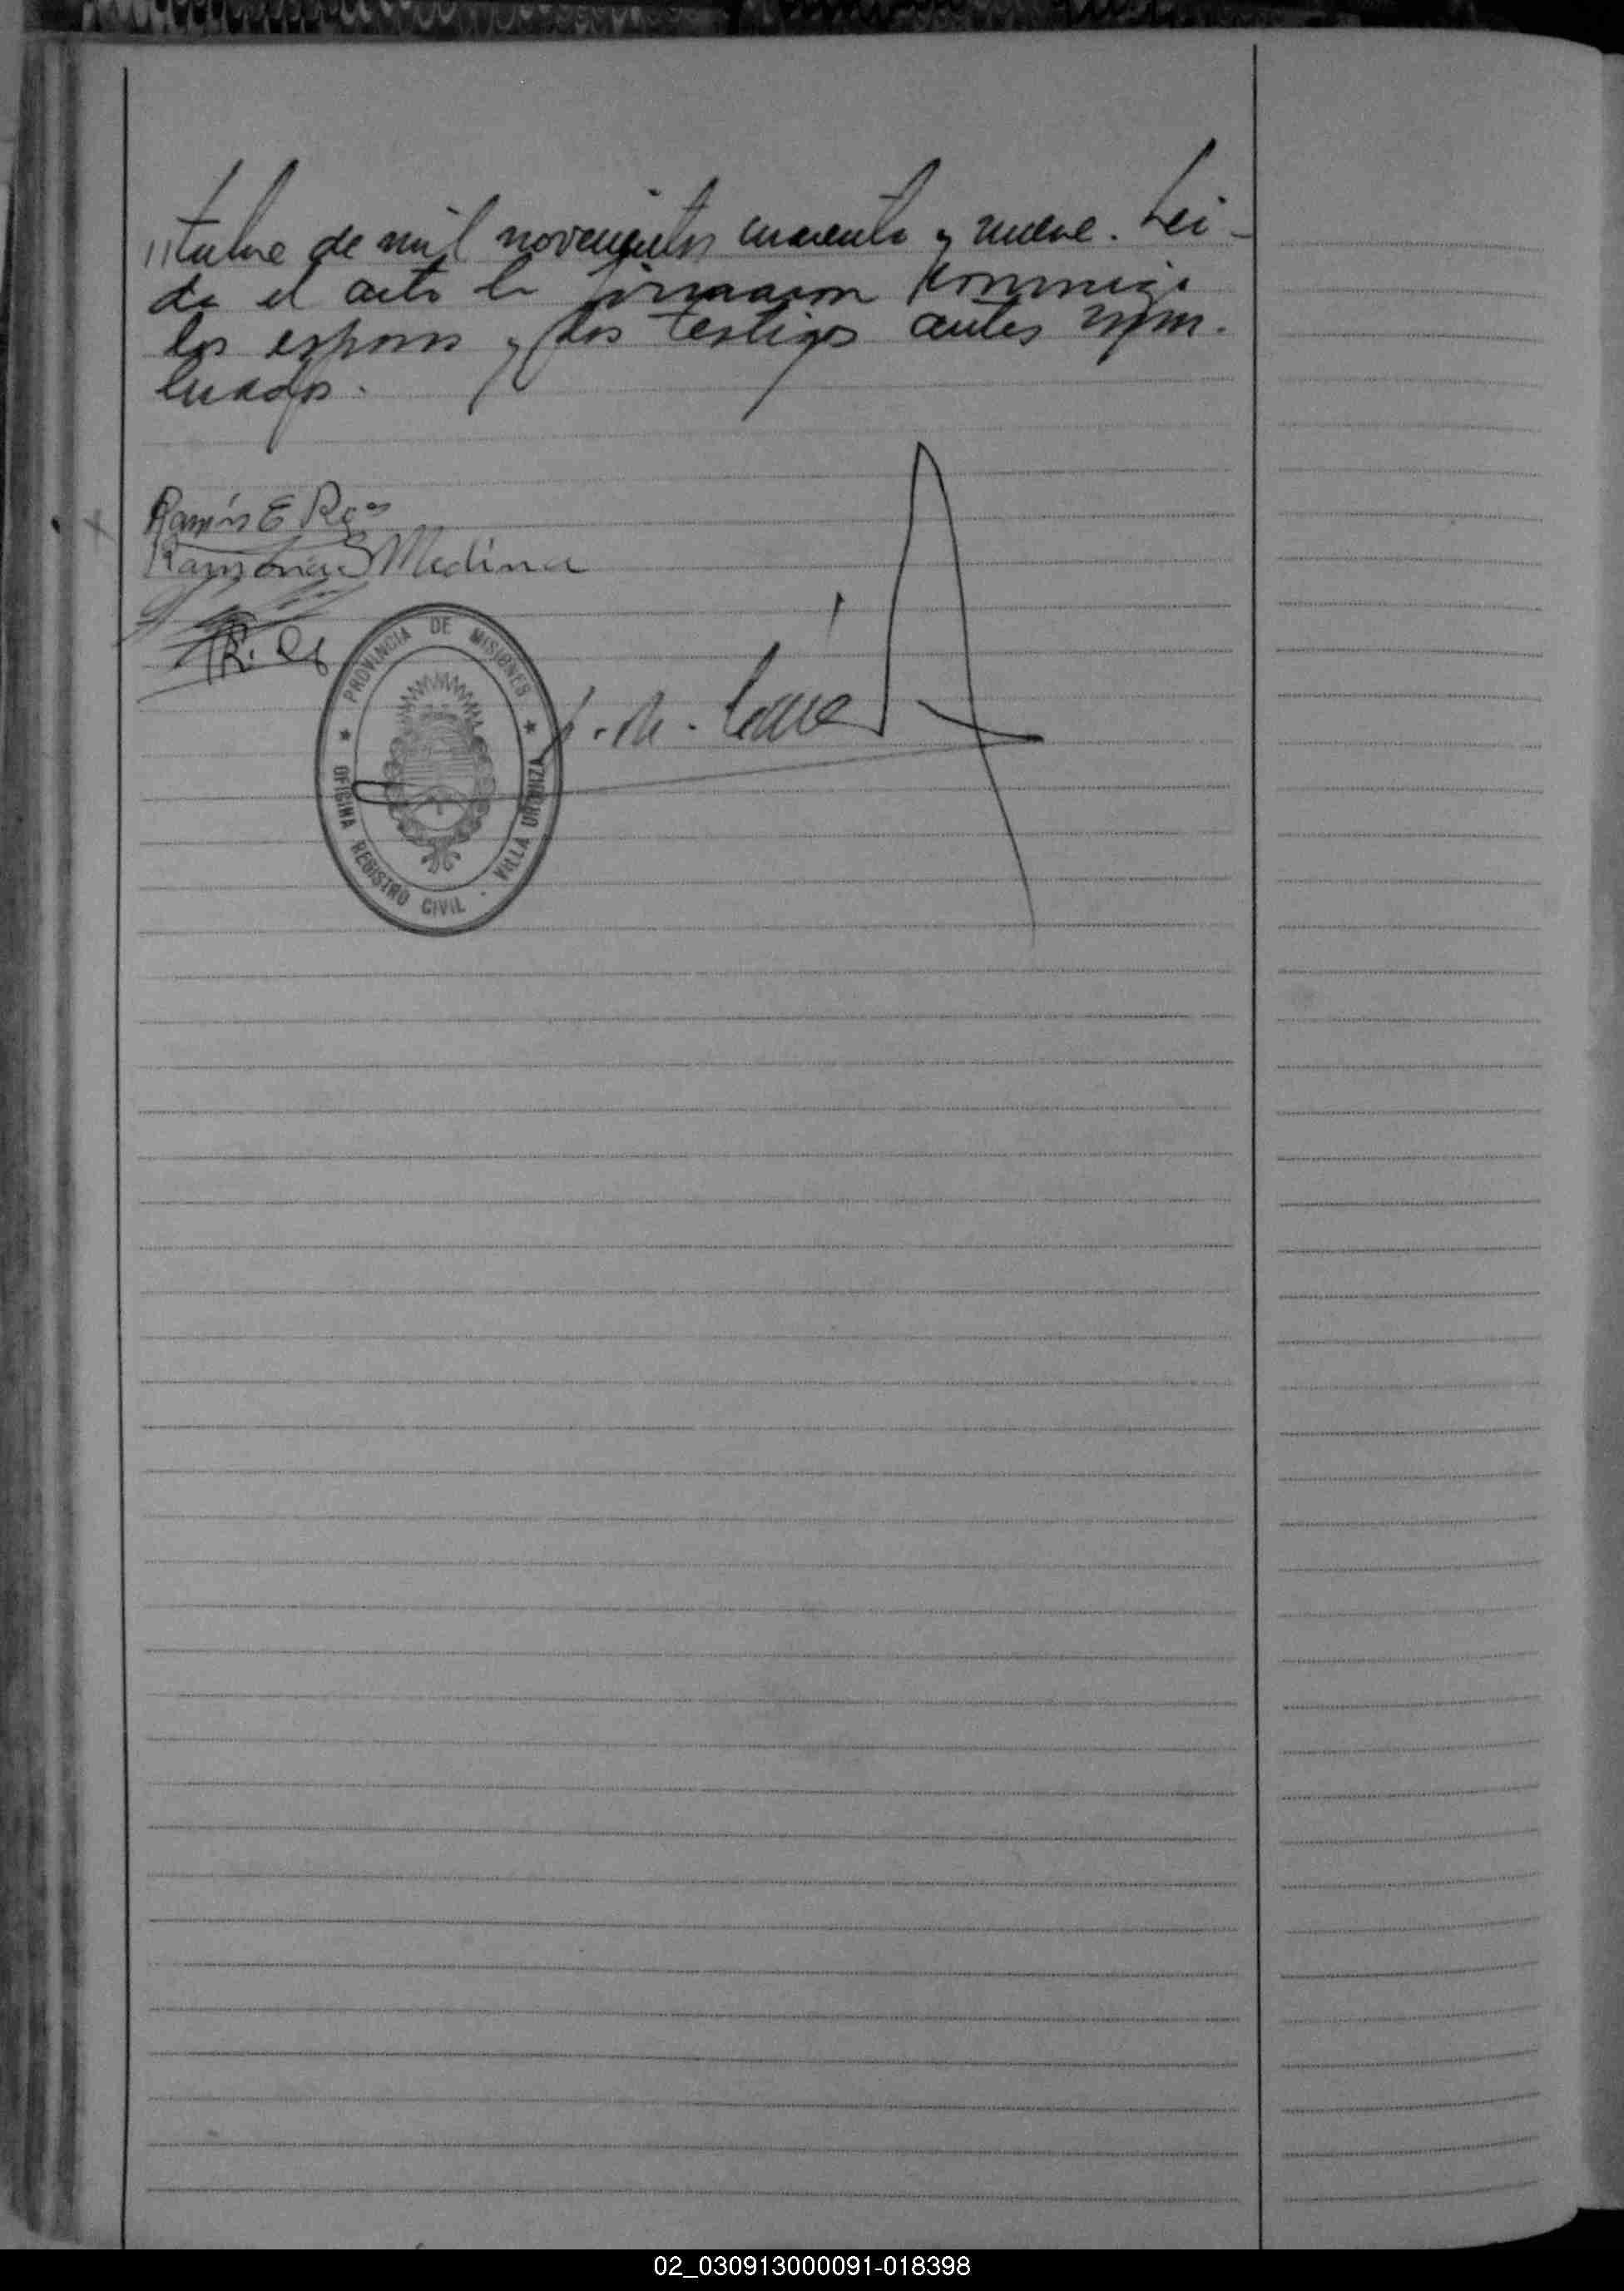 //tubre de mil novecientos cuarenta y nueve. Lei-
da el acta la firmaron conmigo
los esposos y los testigos antes nom-
brados.
Ramón E
Ramona Medina
PROVINCIA DE MISIONES
OFICINA REGISTRO CIVIL · VILLA URQUIZA
02_030913000091-018398